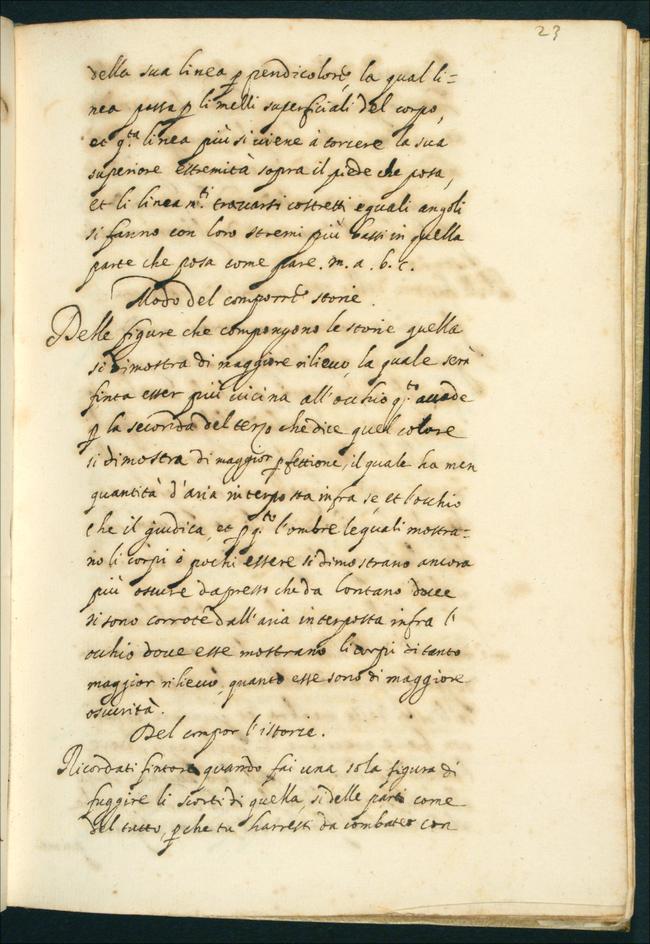 23
della sua linea p pendicolare, la qual li=
nea passa p li melli superficiali del corpo,
et q.ta linea più si viene à torcere la sua
superiore estremità sopra il piede che posa,
et li linea.m.ti trovarsi costretti eguali angoli
si fanno con loro stremi più bassi in quella
parte che posa come pare. m. a. b. c.
Modo del comporre storie.
Delle figure che compongono le storie quella
si dimostra di maggiore rilievo, la quale serà
finta esser più vicina all'occhio q.to accade
p la seconda del terzo che dice quel colore
si dimostra di maggior pfettione, il quale ha men
quantità d'aria interposta infra se, et l'occhio
che il giudica, et p q.to l'ombre lequali mostra=
no li corpi ò pochi essere si dimostrano ancora
più oscure dapresso che da lontano dove
si sono corrote dall'aria interposta infra l'
occhio dove esse mostrano li corpi di tanto
maggior rilievo, quanto esse sono di maggiore
oscurità.
Del compor l'istorie.
Ricordati fintore quando fai una sola figura di
fuggire li scorti di quella, si delle parti come
del tutto, p che tu harresti da combater con